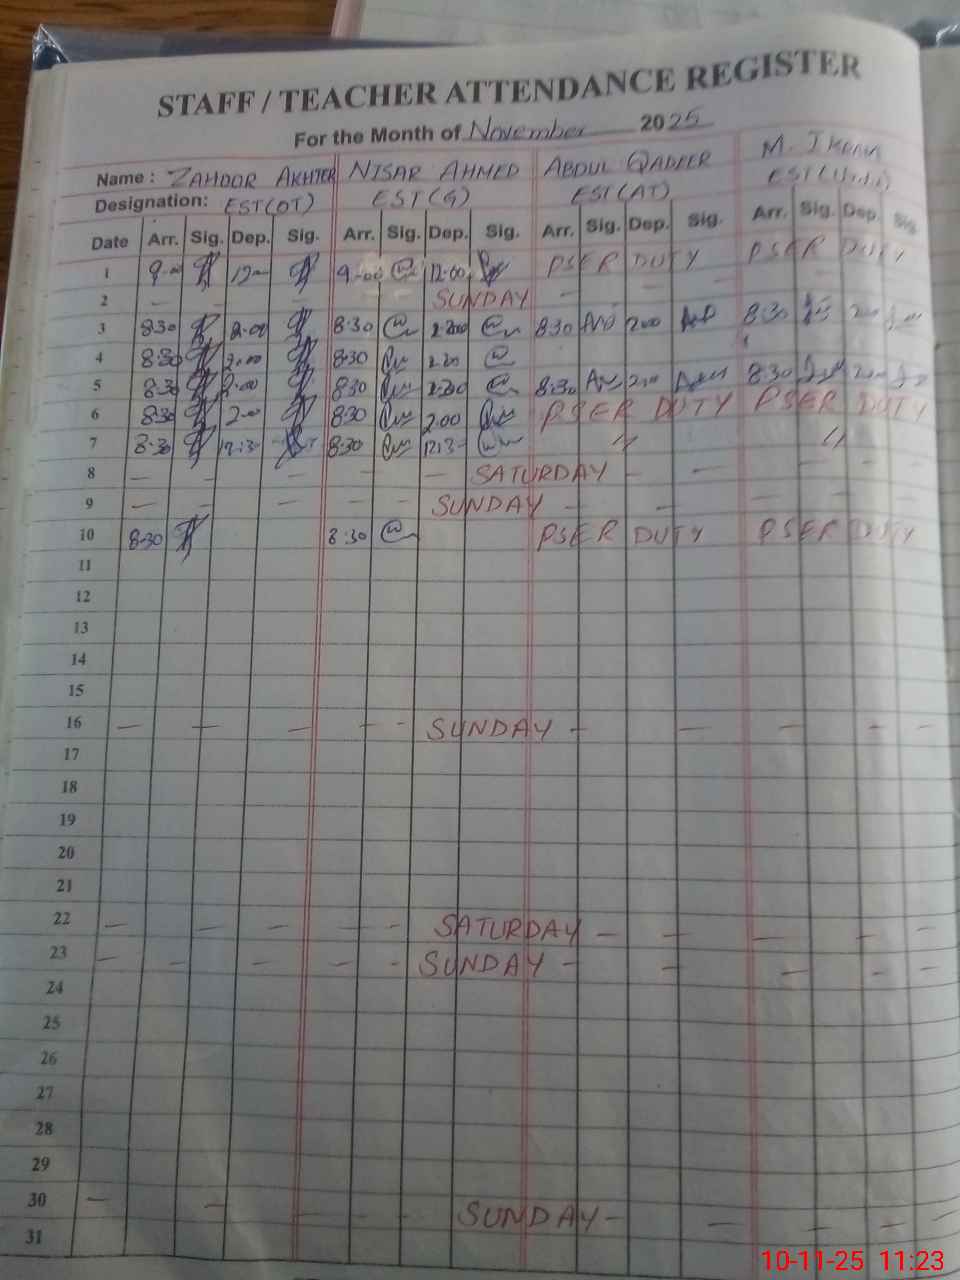 STAFF / TEACHER ATTENDANCE REGISTER
For the Month of November 2025
Name : ZAHOOR AKHTER NISAR AHMED ABDUL QADEER M. IKRAM
Designation: EST(OT) EST(G) EST(AT) EST
Date Arr. Sig. Dep. Sig. Arr. Sig. Dep. Sig. Arr. Sig. Dep. Sig. Arr. Sig. Dep. Sig.
1 9-00 12-00 9-00 12-00 PSER DUTY PSER DUTY
2 — — — SUNDAY — — —
3 8:30 2.00 8:30 2.00 8:30 2.00 8:30 2.00
4 8:30 2.00 8:30 2.00
5 8:30 2.00 8:30 2.00 8:30 2.00 8:30
6 8:30 2.00 8:30 2.00 PSER DUTY PSER DUTY
7 8:30 12:30 8:30 12:3- 〃 〃
8 — — — — — — SATURDAY — — — — —
9 — — — — — SUNDAY — — — — —
10 8:30 8:30 PSER DUTY PSER DUTY
11
12
13
14
15
16 — — — — - SUNDAY — — — — —
17
18
19
20
21
22 — — — — - SATURDAY — — — — —
23 — - — — - SUNDAY — — — — —
24
25
26
27
28
29
30 — — - - - SUNDAY - — — — —
31
10-11-25 11:23